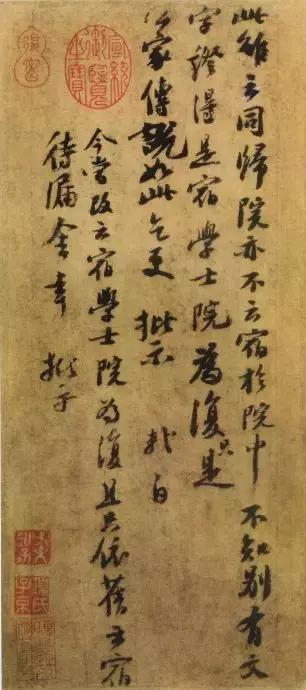 此雖云同歸院亦不云宿於院中不知別有文
字證得是宿學士院為復只是
公家傳說如此乞更 批示 軾白
今當改云宿學士院為復且只依舊云宿
待漏舍幸 批示
宣統御覽之寶